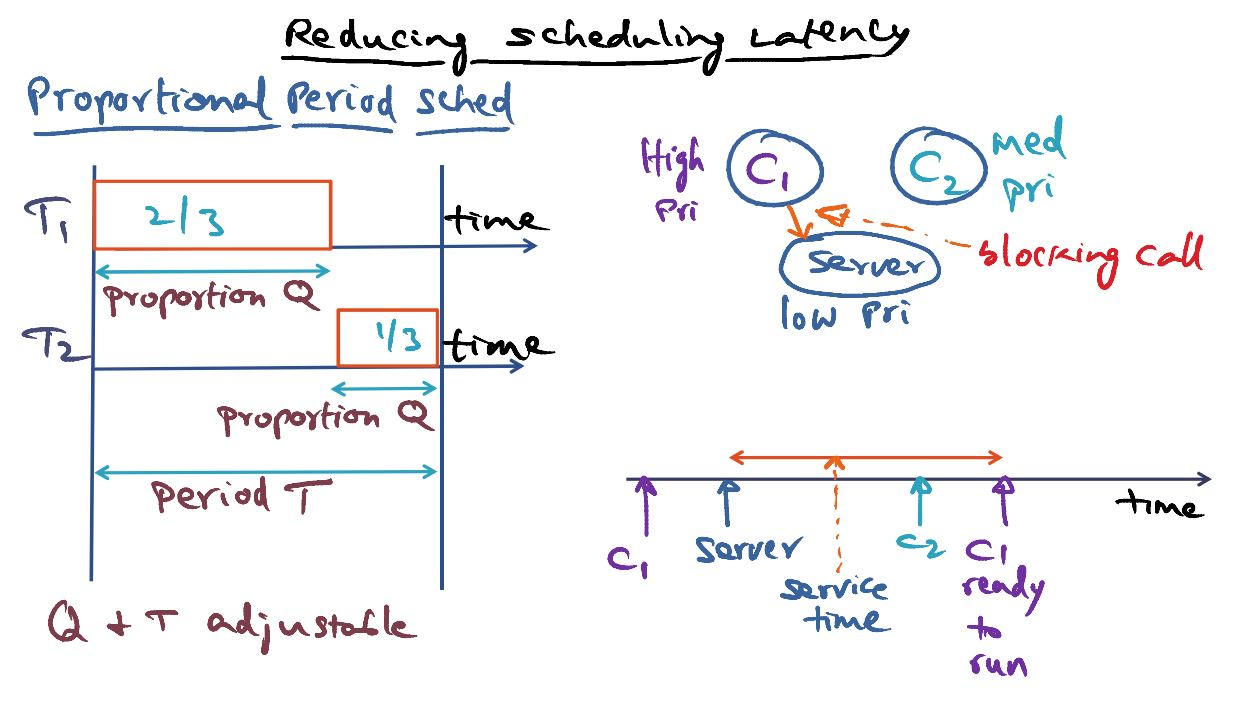 Reducing scheduling Latency
Proportional Period sched
T1
2/3
time
Proportion Q
T2
1/3
time
Proportion Q
Period T
Q + T adjustable
High
Pri
C1
C2
med
pri
blocking call
server
low Pri
time
C1
server
service
time
C2
C1
ready
to
run